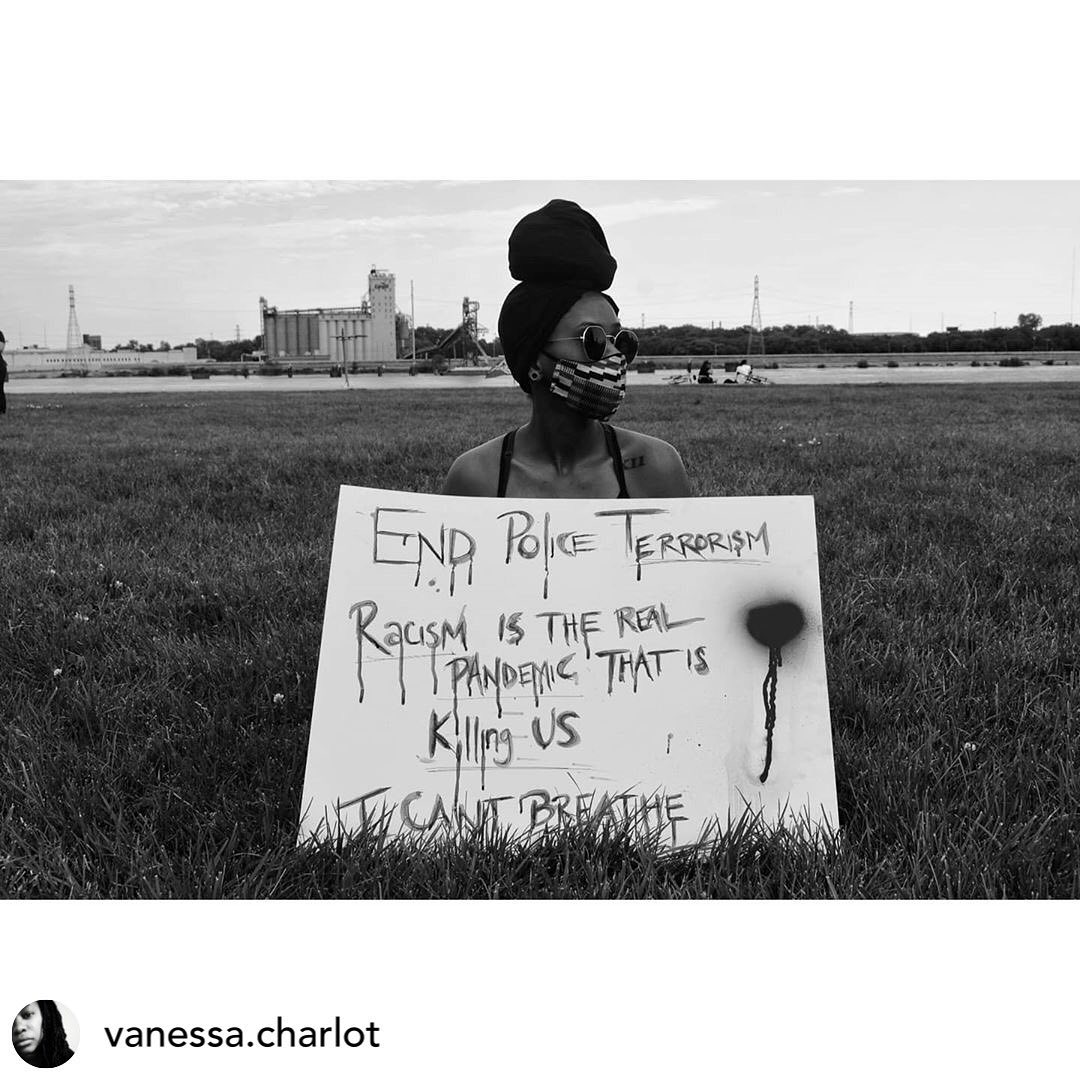 XII
END POLICE TERRORISM
RACISM IS THE REAL
PANDEMIC THAT IS
Killing US
I CAN'T BREATHE
vanessa.charlot